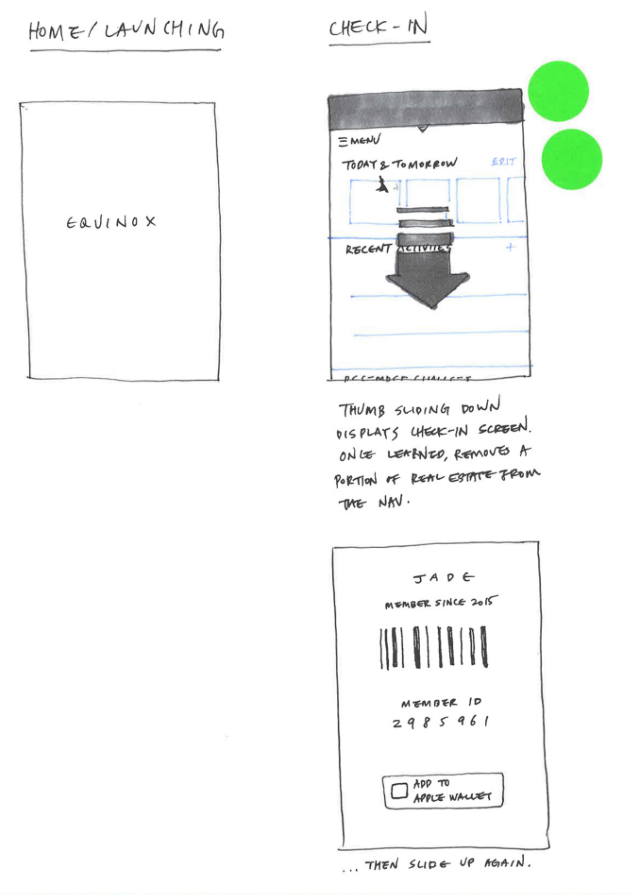 HOME/LAUNCHING
EQUINOX
CHECK-IN
MENU
TODAY & TOMORROW EDIT
RECENT ACTIVITIES +
THUMB SLIDING DOWN
DISPLAYS CHECK-IN SCREEN.
ONCE LEARNED, REMOVES A
PORTION OF REAL ESTATE FROM
THE NAV.
JADE
MEMBER SINCE 2015
MEMBER ID
2985961
ADD TO
APPLE WALLET
... THEN SLIDE UP AGAIN.